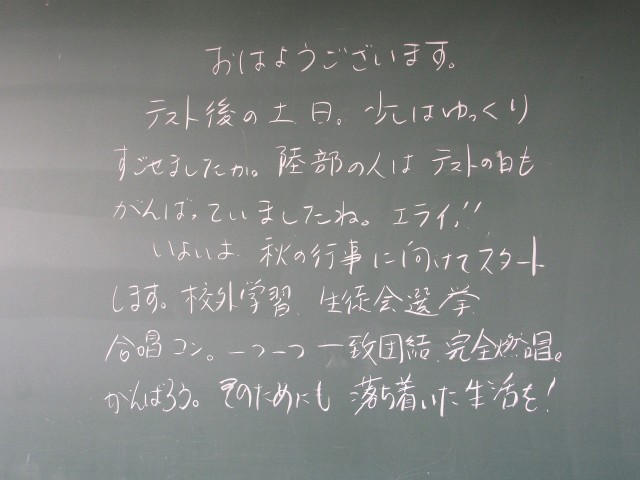 おはようございます。
テスト後の土日。少しはゆっくり
すごせましたか。陸部の人は テストの日も
がんばっていましたね。エライ!!
いよいよ 秋の行事に向けてスタート
します。校外学習、生徒会選挙
合唱コン。一つ一つ 一致団結、完全燃唱。
がんばろう。そのためにも 落ち着いた生活を!